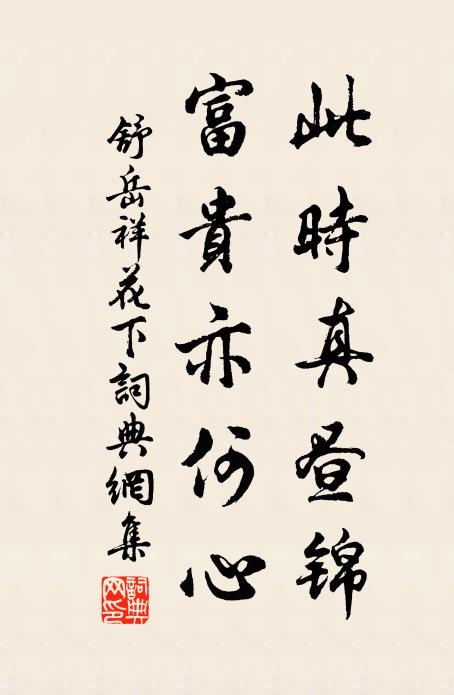 此時真昼锦
富貴亦何心
舒岳祥花下詞典網集
詞典网印